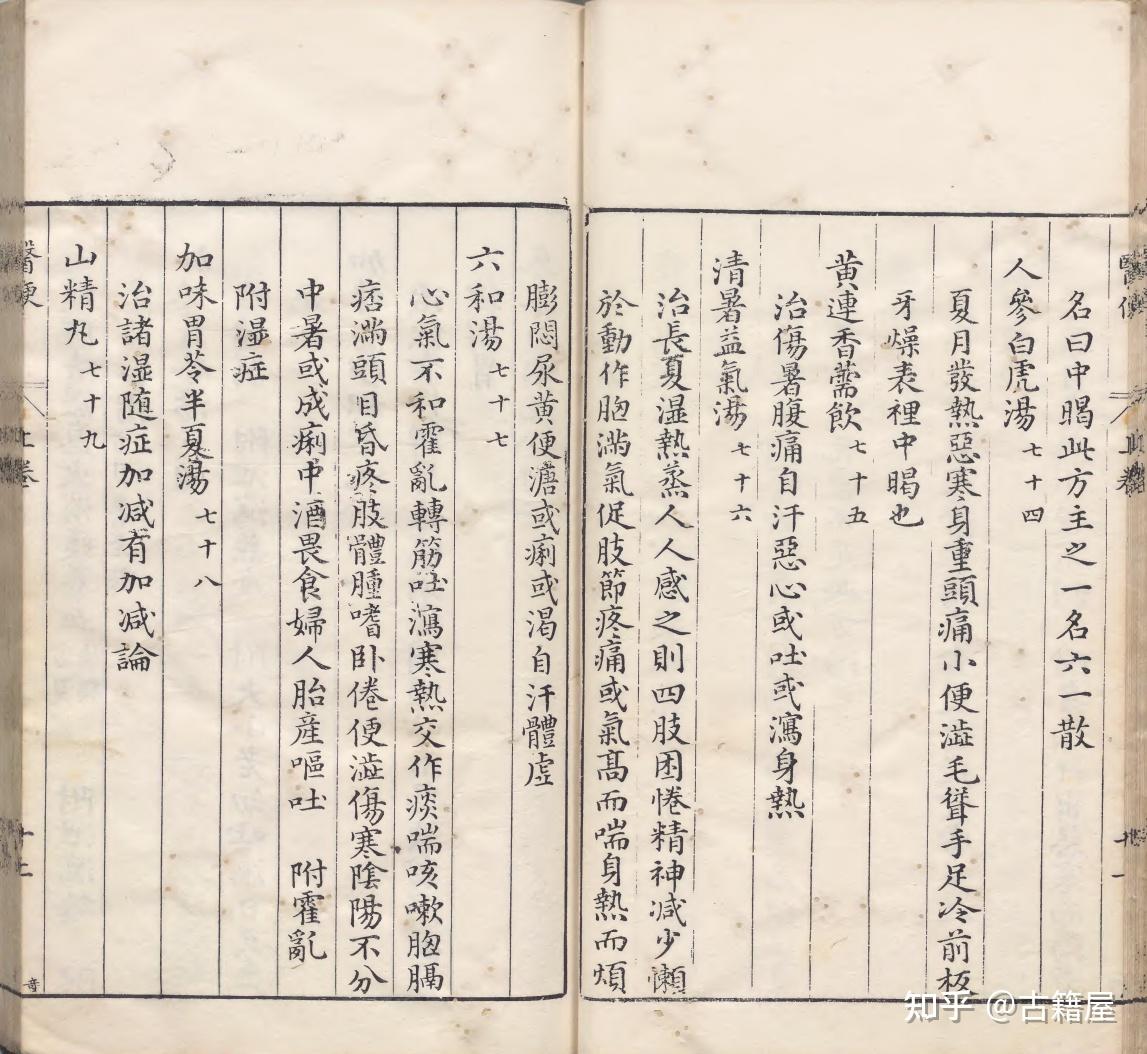 名曰中暍此方主之一名六一散
人參白虎湯 七十四
夏月發熱惡寒身重頭痛小便澁毛聳手足冷前板
牙燥表裡中暍也
黄連香薷飲 七十五
治傷暑腹痛自汗惡心或吐或瀉身熱
清暑益氣湯 七十六
治長夏湿熱蒸人人感之則四肢困惓精神减少懶
於動作胞滿氣促肢節疼痛或氣髙而喘身熱而煩
膨悶尿黄便溏或痢或渴自汗體虛
六和湯 七十七
心氣不和霍亂轉筋吐瀉寒熱交作痰喘咳嗽胞膈
痞滿頭目昏疼肢體腫嗜卧倦便澁傷寒陰陽不分
中暑或成痢中酒畏食婦人胎産嘔吐 附霍亂
附湿症
加味胃苓半夏湯 七十八
治諸湿随症加减有加减論
山精丸 七十九
醫便
上卷
知乎 @古籍屋